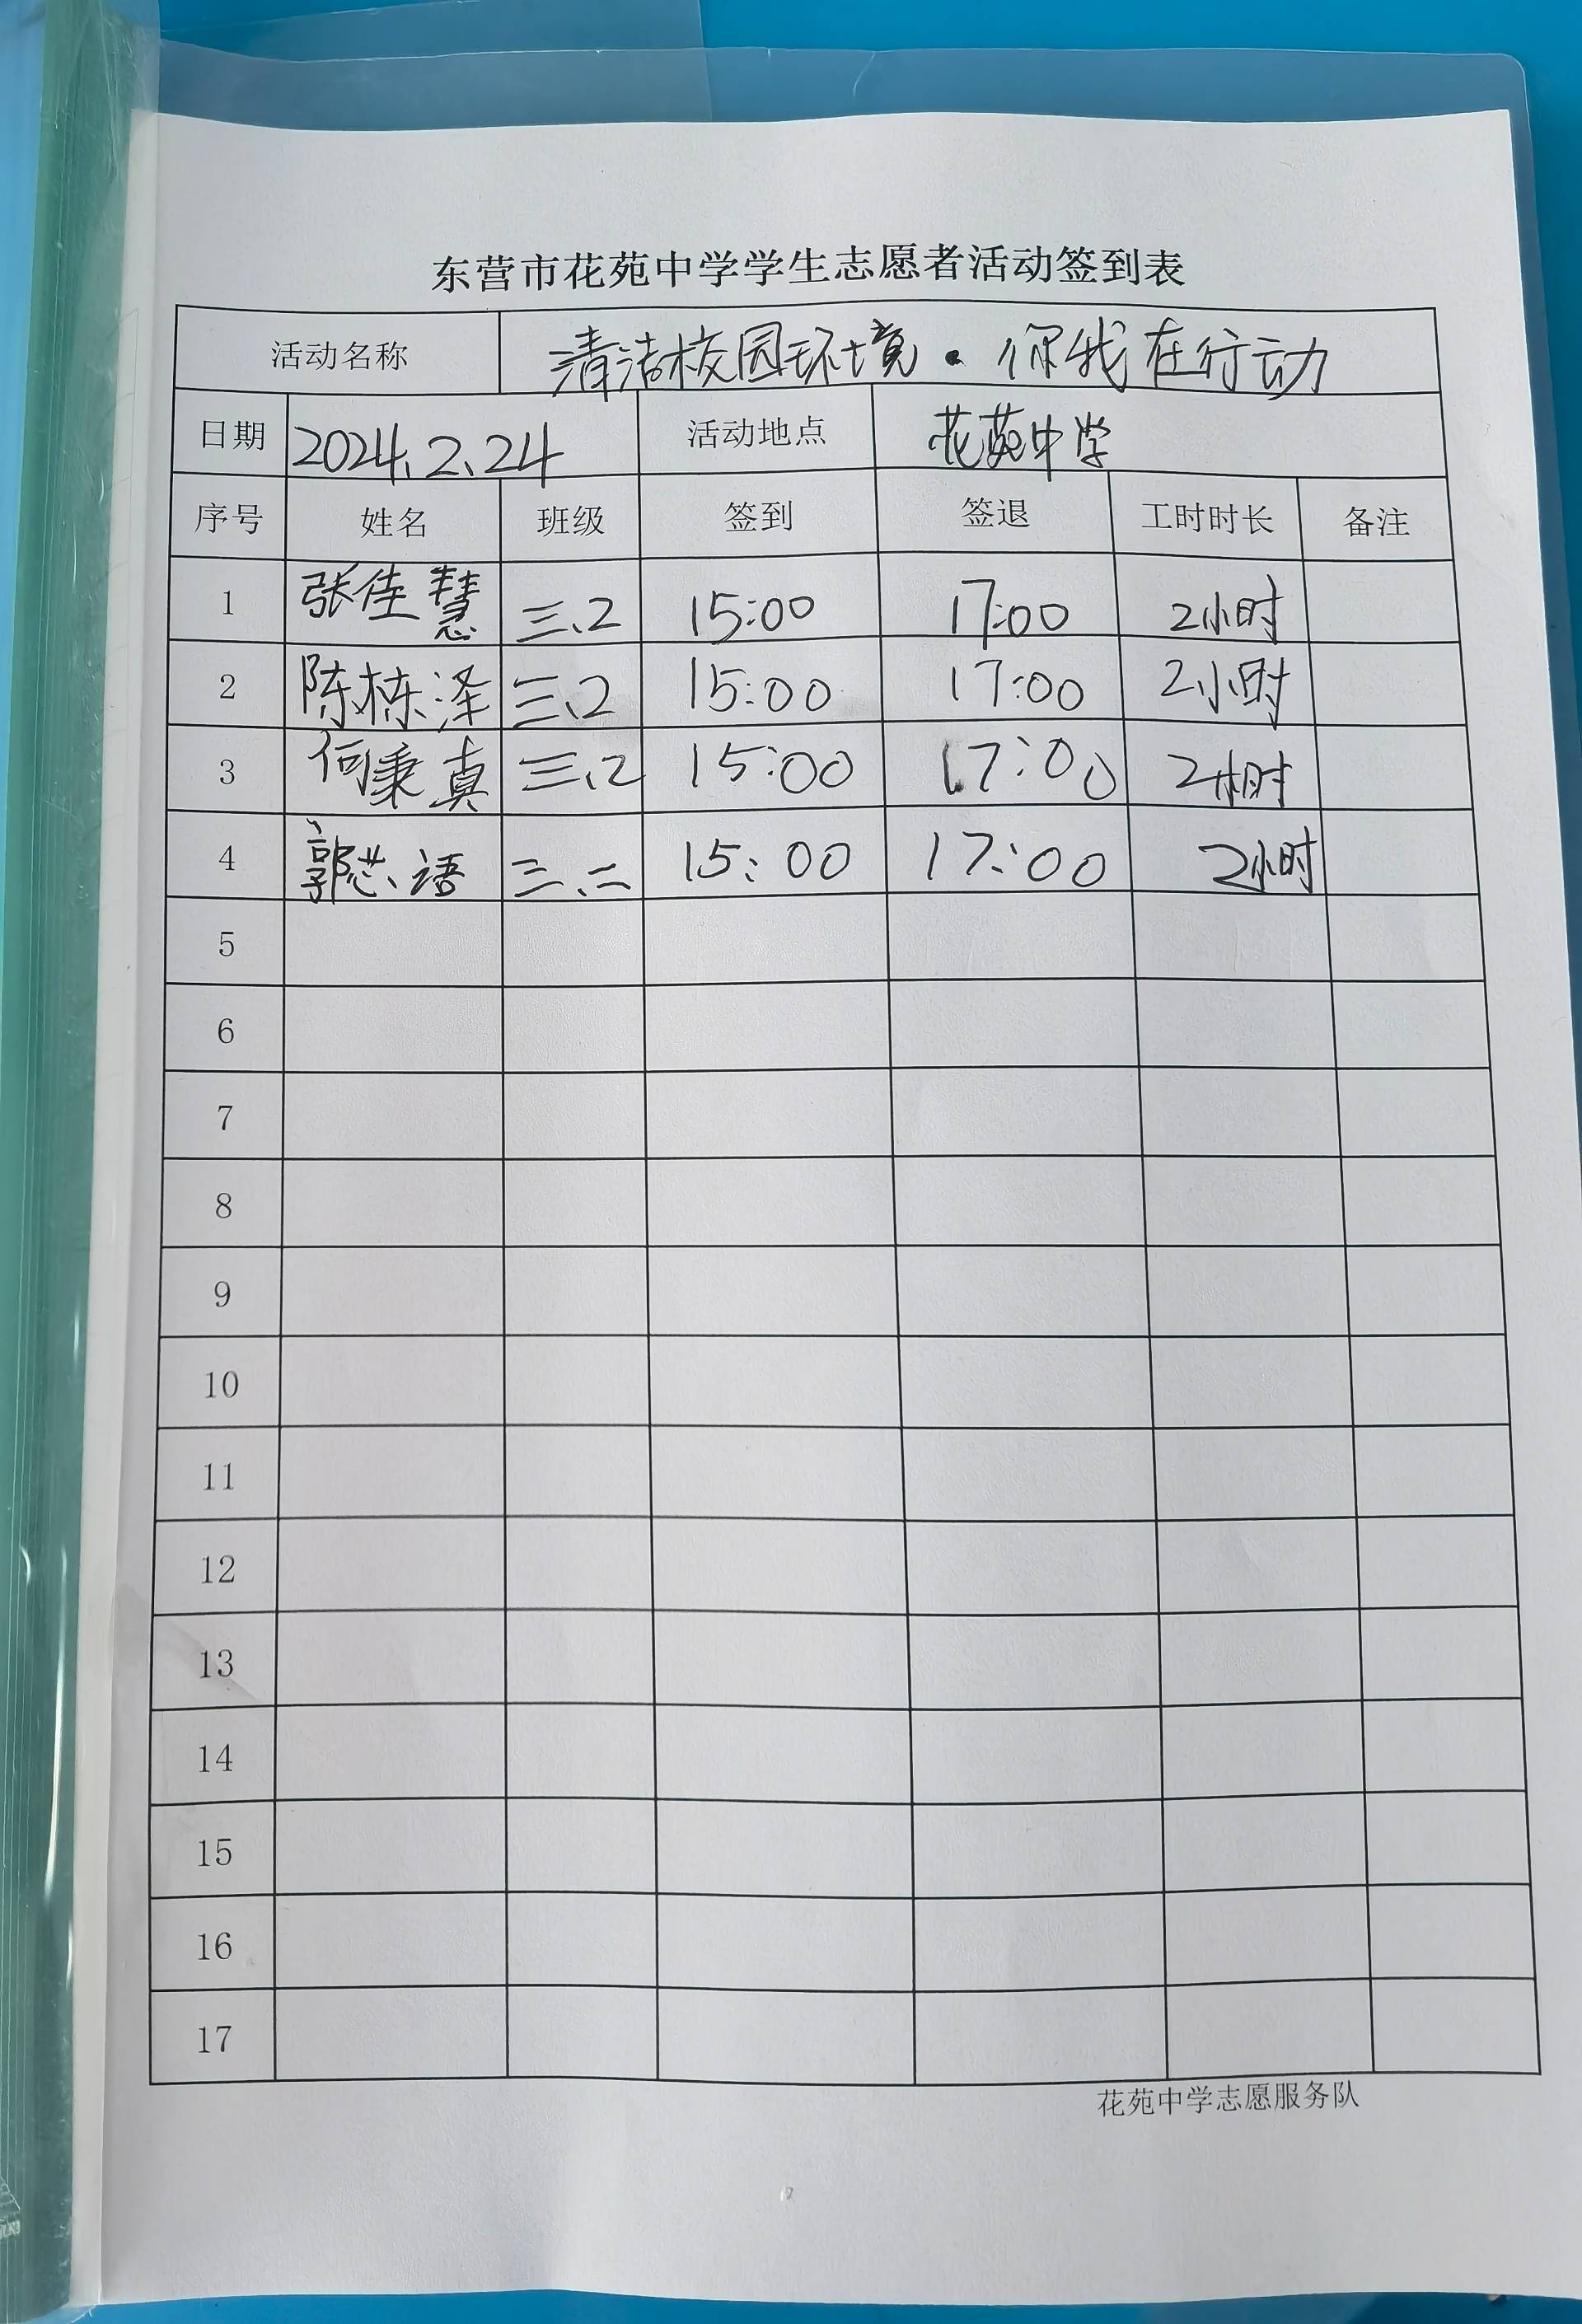 东营市花苑中学学生志愿者活动签到表
活动名称 清洁校园环境·你我在行动
日期 2024.2.24 活动地点 花苑中学
序号 姓名 班级 签到 签退 工时时长 备注
1 张佳慧 三、2 15:00 17:00 2小时
2 陈栋泽 三、2 15:00 17:00 2小时
3 何秉真 三、2 15:00 17:00 2小时
4 郭芯语 三、二 15:00 17:00 2小时
5
6
7
8
9
10
11
12
13
14
15
16
17
花苑中学志愿服务队